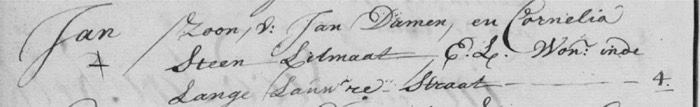 Jan Zoon, v: Jan Damen, en Cornelia
+ Steen Litmaat E.L. Won: inde
Lange Lauw:re Straat 4.